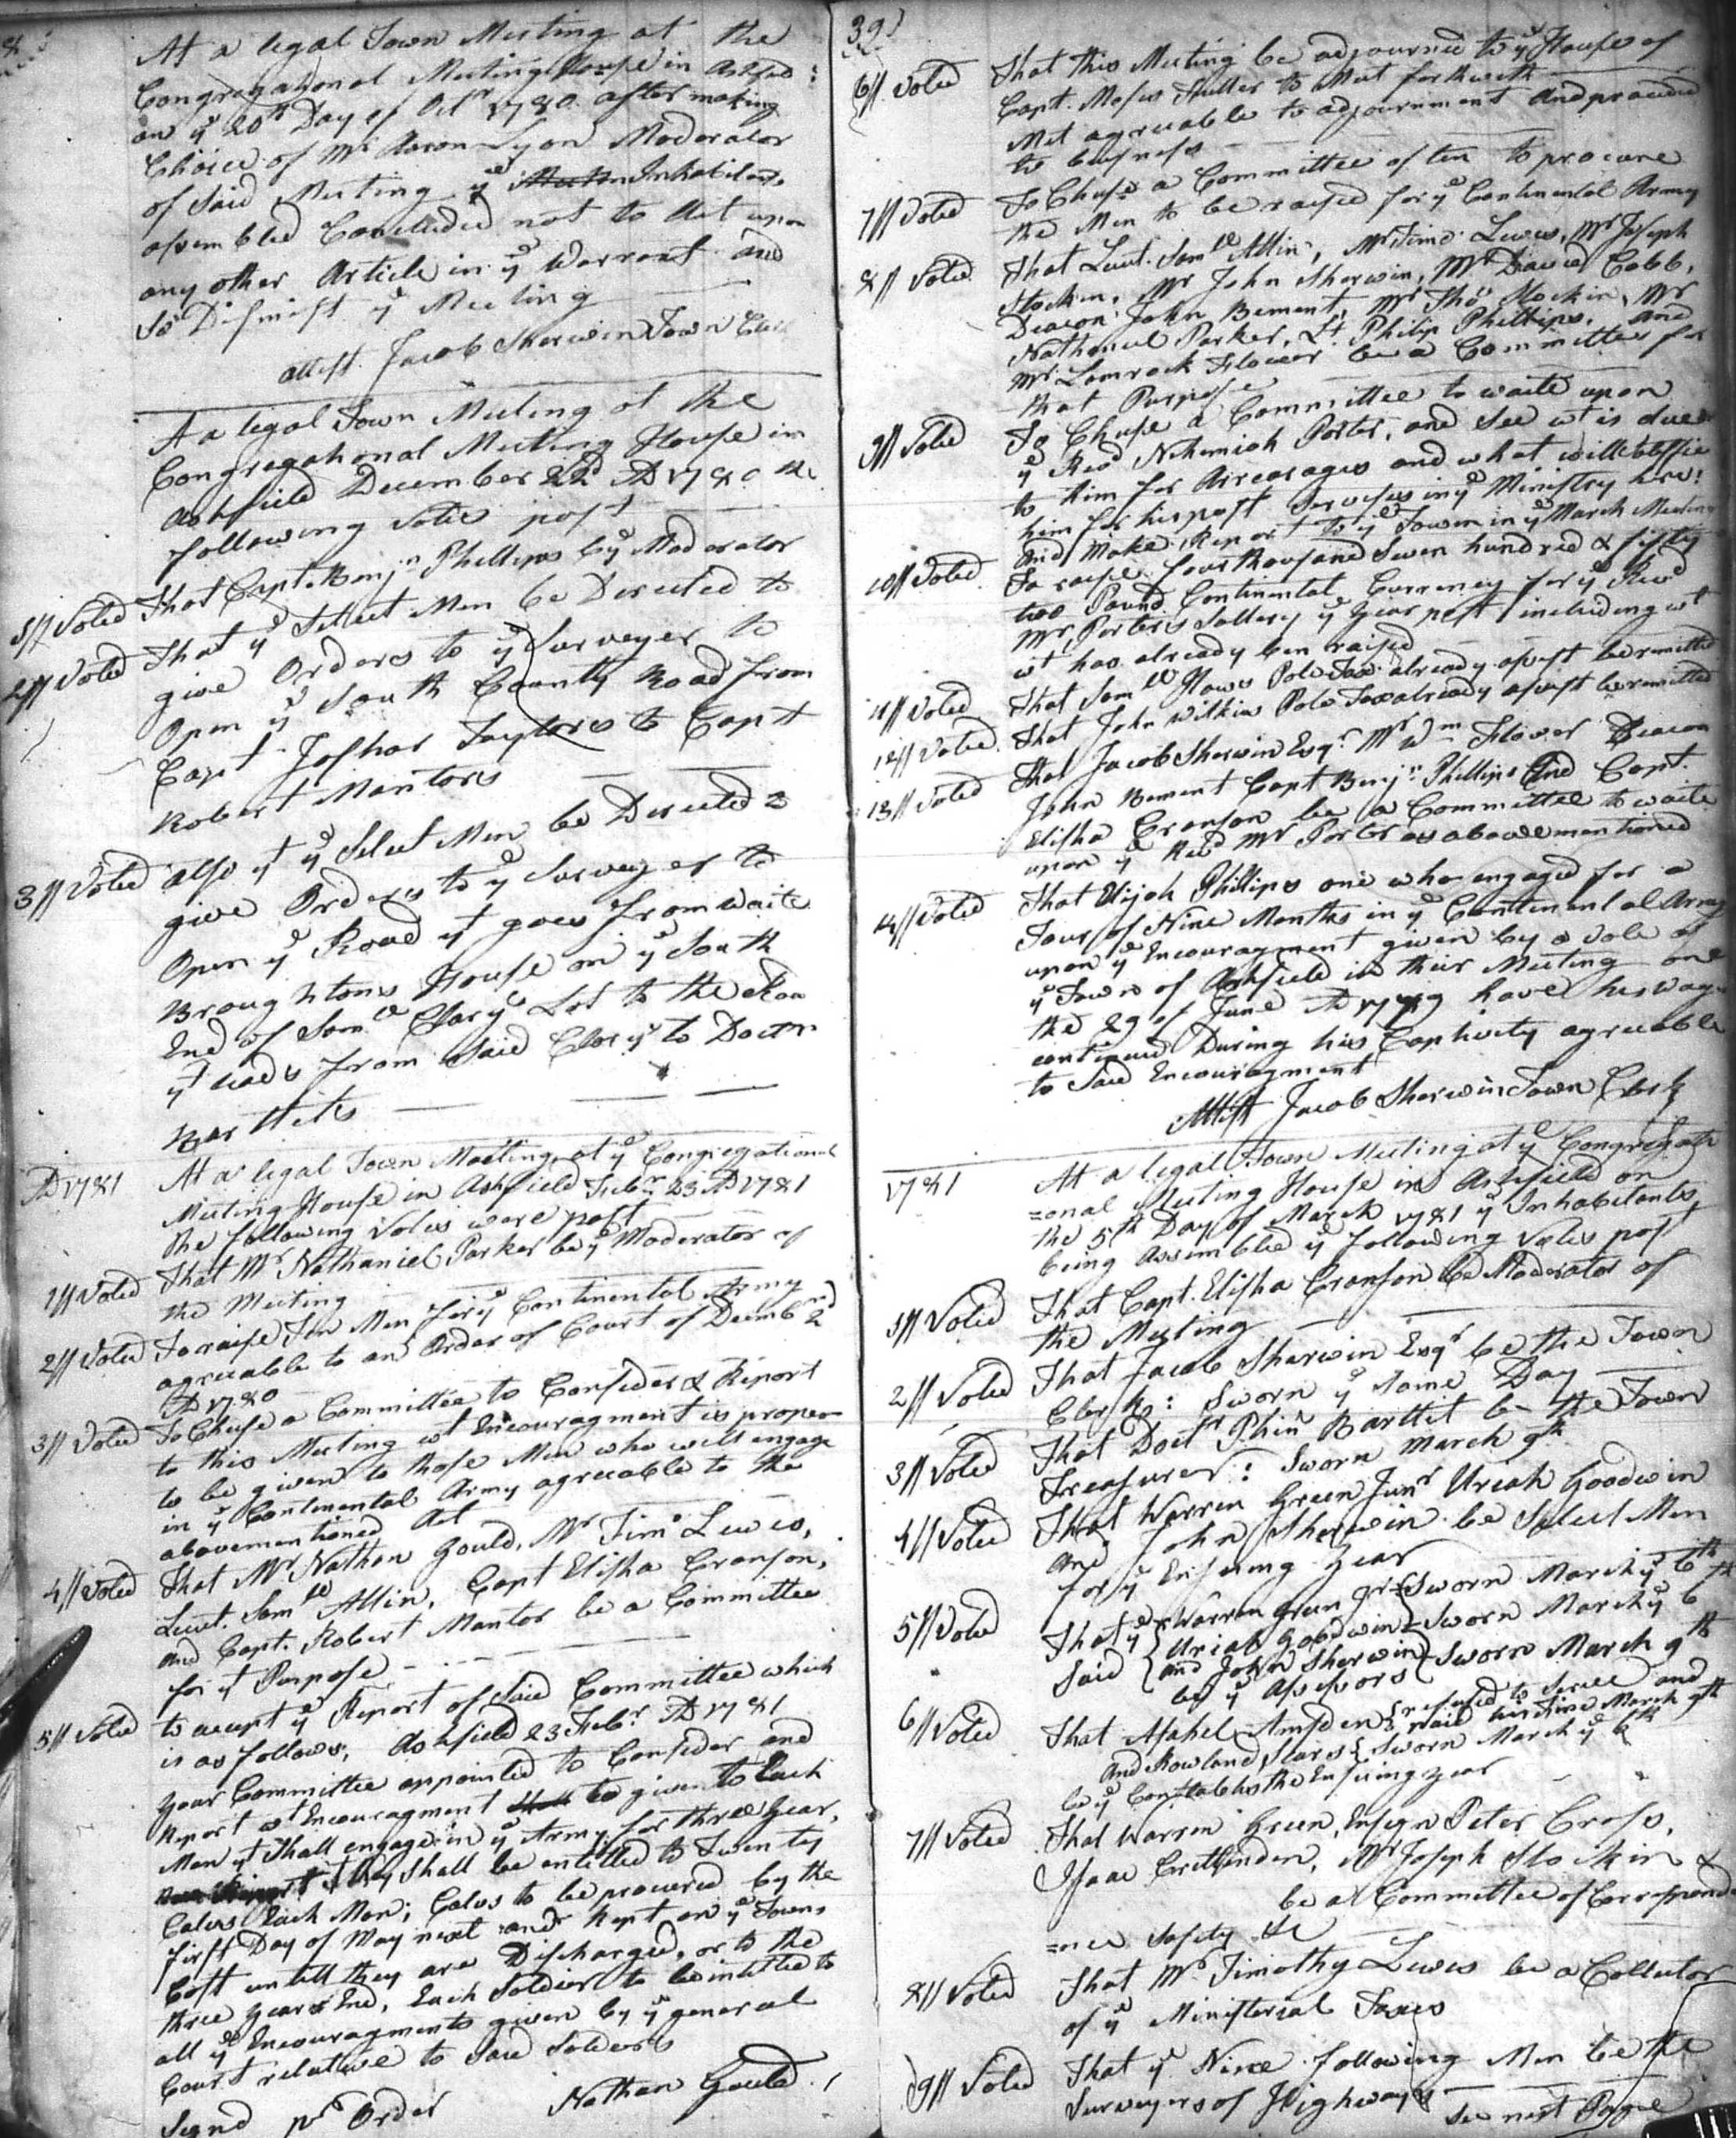 At a legal Town Meeting at the
Congregational Meeting House in Ashfd :
on ye 20th Day of Octr 1780. after making
Choice of Mr Aaron Lyon Moderator
of Said Meeting ye Inhabitants
assembled Concluded not to Act upon
any other Article in ye Warrant and
So Dismist ye Meeting
attest. Jacob Sherwin Town Clerk
At a legal Town Meeting at the
Congregational Meeting House in
Ashfield December 22d AD 1780 the
following Votes past
1// Voted That Capt. Benjn Phillips be ye Moderator
2// Voted That ye Select Men be Directed to
give Orders to ye Surveyer to
Open ye South County Road from
Capt. Jashar Taylors to Capt
Robert Mantors
3// Voted also yt ye Select Men be Directed 2
give Orders to ye Surveyer to
Open ye Road yt goes from Waite
Broughtons House on ye South
End of Samll Clarys Lot to the Roa
yt leads from Said Clarys to Doctr
Bartlits
AD 1781 At a legal Town Meeting at ye Congregational
Meeting House in Ashfield Febr 23 AD 1781
the following Votes were past
1// Voted That Mr Nathaniel Parker be ye Moderator of
the Meeting
2// Voted To raise Ten Men for ye Continental Army
agreeable to an Order of Court of Decmbr 2nd
AD 1780
3// Voted To Chuse a Committee to Consider & Report
to this Meeting wt Encouragment is proper
to be given to those Men who will engage
in ye Continental Army agreeable to the
abovementioned Act
4// Voted That Mr Nathan Gould, Mr Timo Lewes,
Lieut. Samll Allin, Capt Elisha Cranson,
and Capt. Robert Mantor be a Committee
for yt Purpose
5// Voted to accept ye Report of Said Committee which
is as follows, Ashfield 23 Febr AD 1781
your Committee appointed to Consider and
Report wt Encouragment to given to Each
Man yt Shall engage in ye Army for three Year,
yt they Shall be entitled to Twenty
Calves Each Man; Calves to be procured by the
first Day of May next and Kept on ye Towns
Cost untill they are Discharged, or to the
three years End, Each Soldier to be intitled to
all ye Encouragments given by ye general
Court relative to Said Soldiers
Signd pr Order Nathan Gould
39
6// Voted That this Meeting be adjourned to ye House of
Capt. Moses Fuller to Meet forthwith
Met agreeable to adjournment and proceeded
to business
7// Voted To Chuse a Committee of ten to procure
the Men to be raised for ye Continental Army
8// Voted That Lieut. Samll Allin, Mr Timo Lewes, Mr Joseph
Stockin, Mr John Sherwin, Mr David Cobb,
Deacon John Bement, Mr Thos Stockin, Mr
Nathaniel Parker, Lt Philip Phillips, and
Mr Lamrock Flower be a Committee for
that Purpose
9// Voted To Chuse a Committee to waite upon
ye Revd Nehemiah Porter, and See wt is due
to him for Arrearages and what will satisfie
him for his past Services in ye Ministry here:
And Make Report to ye Town in ye March Meeting
10// Voted To raise four thousand Seven hundred & fifty
two Pound Continental Currency for ye Revd
Mr Porters Sallery ye Year past including wt
wt has already ben raised
11// Voted That Samll Hows Pole Tax already assest be remitted
12// Voted That John Wilkie Pole Tax already assest be remitted
13// Voted That Jacob Sherwin Esqr Mr Wm Flower Deacon
John Bement Capt Benjn Phillips And Capt.
Elisha Cranson be a Committee to waite
upon ye Revd Mr Porter as above mentioned
14// Voted That Elijah Phillips one who engaged for a
Tour of Nine Months in ye Continental Army
upon ye Encouragment given by a Vote of
ye Town of Ashfield in their Meeting one
the 29 of June AD 1779 have his wages
continued During his Captivity agreeable
to Said Encouragment
Attest Jacob Sherwin Town Clerk
1781 At a legal Town Meeting at ye Congregati
=onal Meeting House in Ashfield on
the 5th Day of March 1781 ye Inhabitants
being Assembled ye following Votes past
1// Voted That Capt. Elisha Cranson be Moderator of
the Meeting
2// Voted That Jacob Sherwin Esqr be the Town
Clerk: Sworn ye same Day
3// Voted That Doctr Phins Bartlit be the Town
Treasurer: Sworn March 9th
4// Voted That Warren Green Junr Uriah Goodwin
and John Sherwin be Select Men
for ye Ensuing Year
5// Voted That ye Said { Warren Green Jr Sworn March ye 6th
Uriah Goodwin Sworn March ye 6th
and John Sherwin Sworn March 9th
be ye Assessors
6// Voted That Asahel Amsden { refused to Serve and paid his fine March 9th
And Rowland Sears { Sworn March ye 6th
be ye Constables the Ensuing year
7// Voted That Warren Green, Ensign Peter Cross,
Isaac Crittenden, Mr Joseph Stockin &
be a Committee of Correspond
=ence Safety &c
8// Voted That Mr Timothy Lewes be a Collector
of ye Ministerial Taxes
9// Voted That ye Nine following Men be the
Surveyers of Highways
See next Page